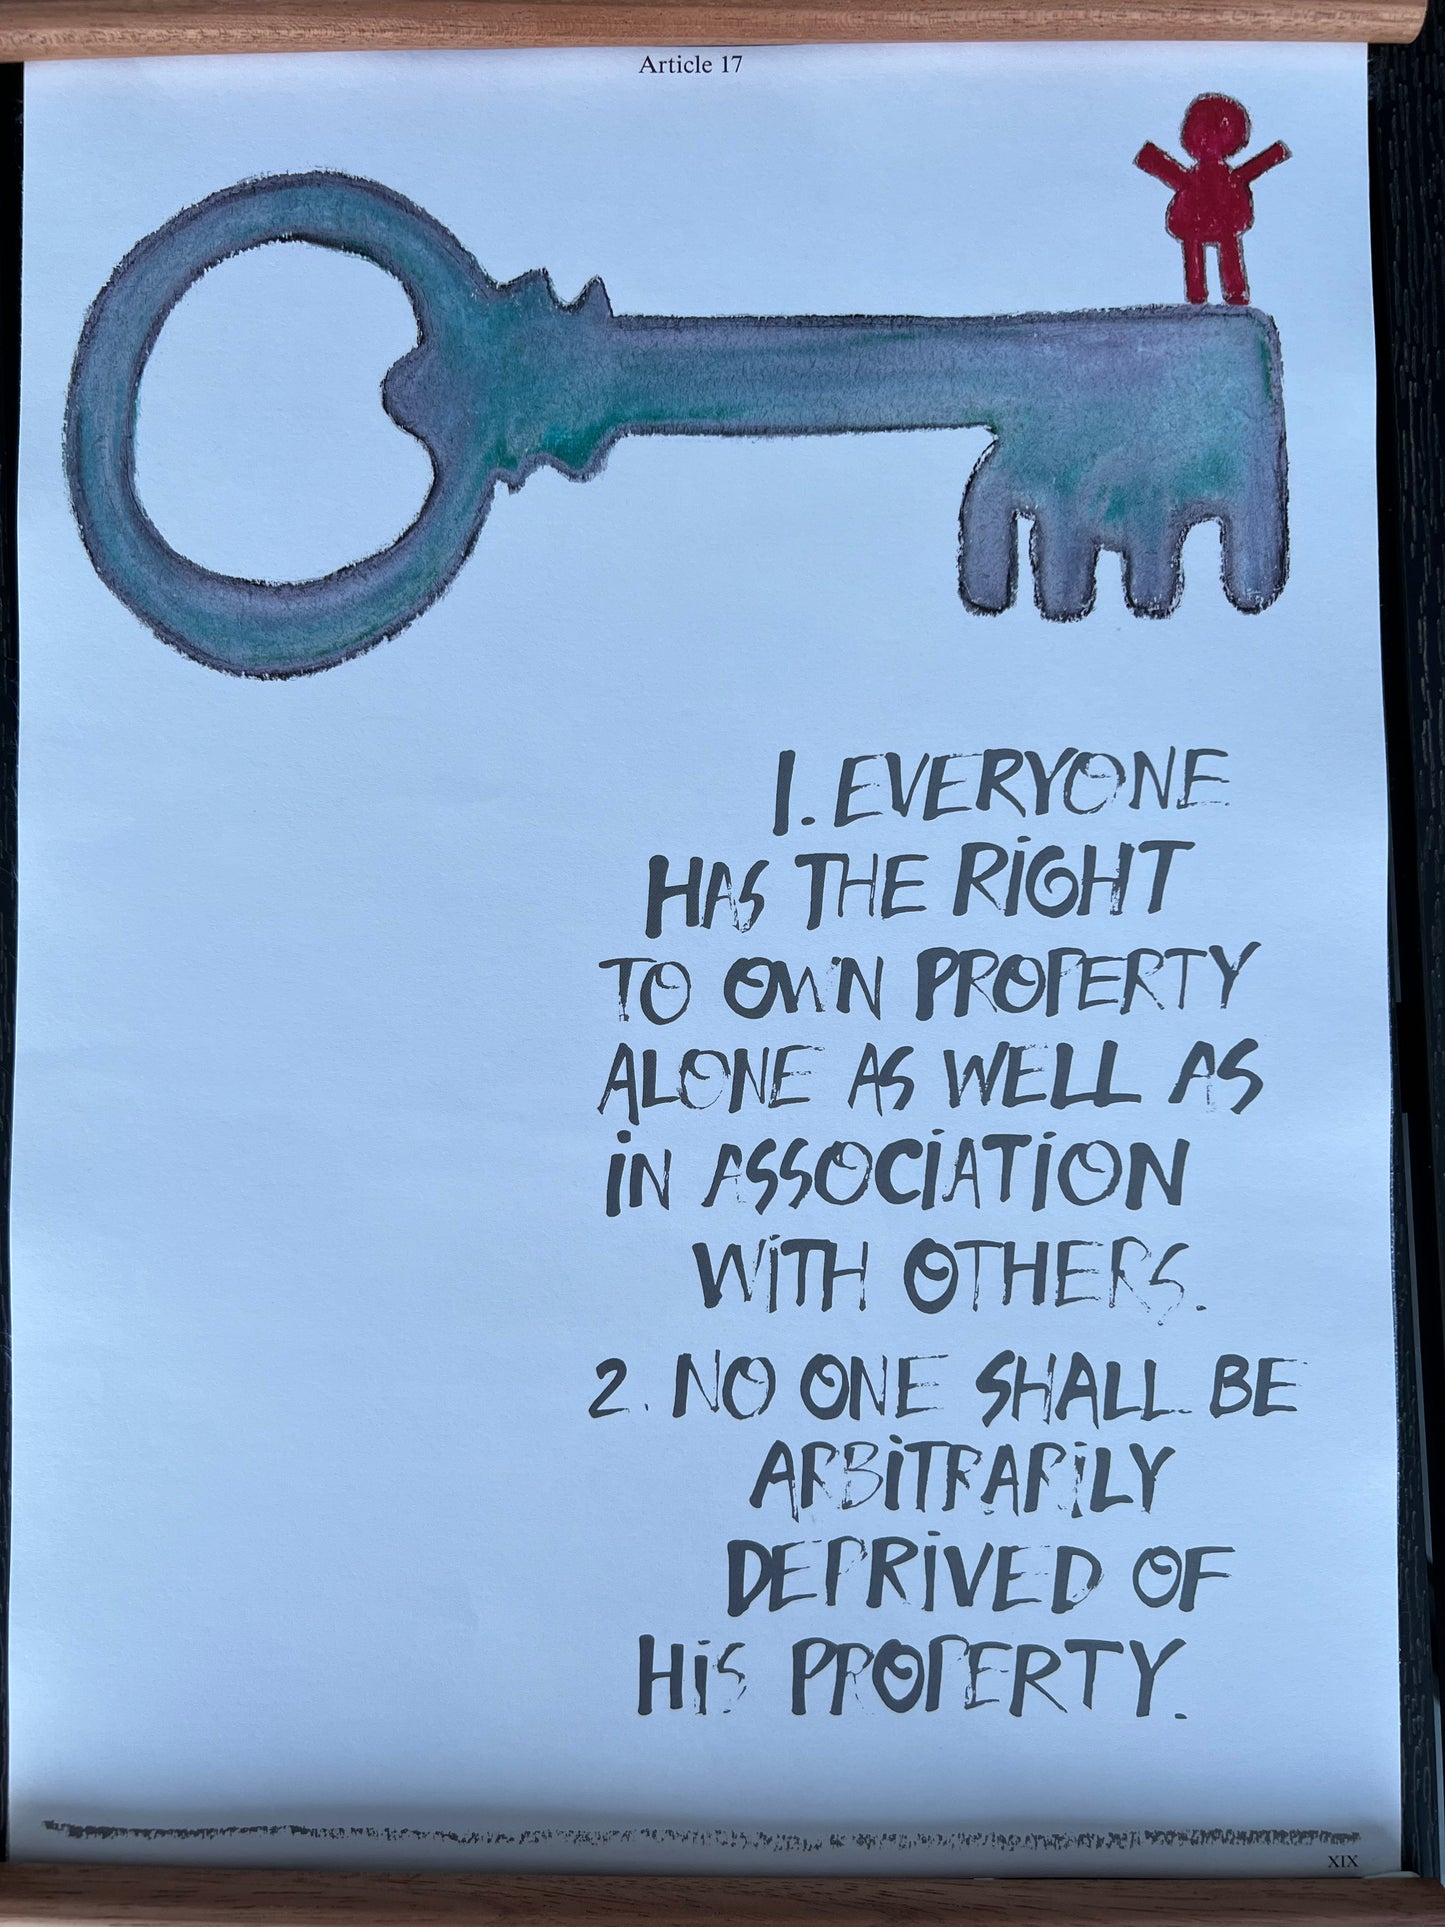 Article 17
1. EVERYONE
HAS THE RiGHT
TO OWN PROPERTY
ALONE AS WELL AS
iN ASSOCiATiON
WiTH OTHERS.
2. NO ONE SHALL BE
ARBiTRARiLY
DEPRiVED OF
HiS PROPERTY.
XIX